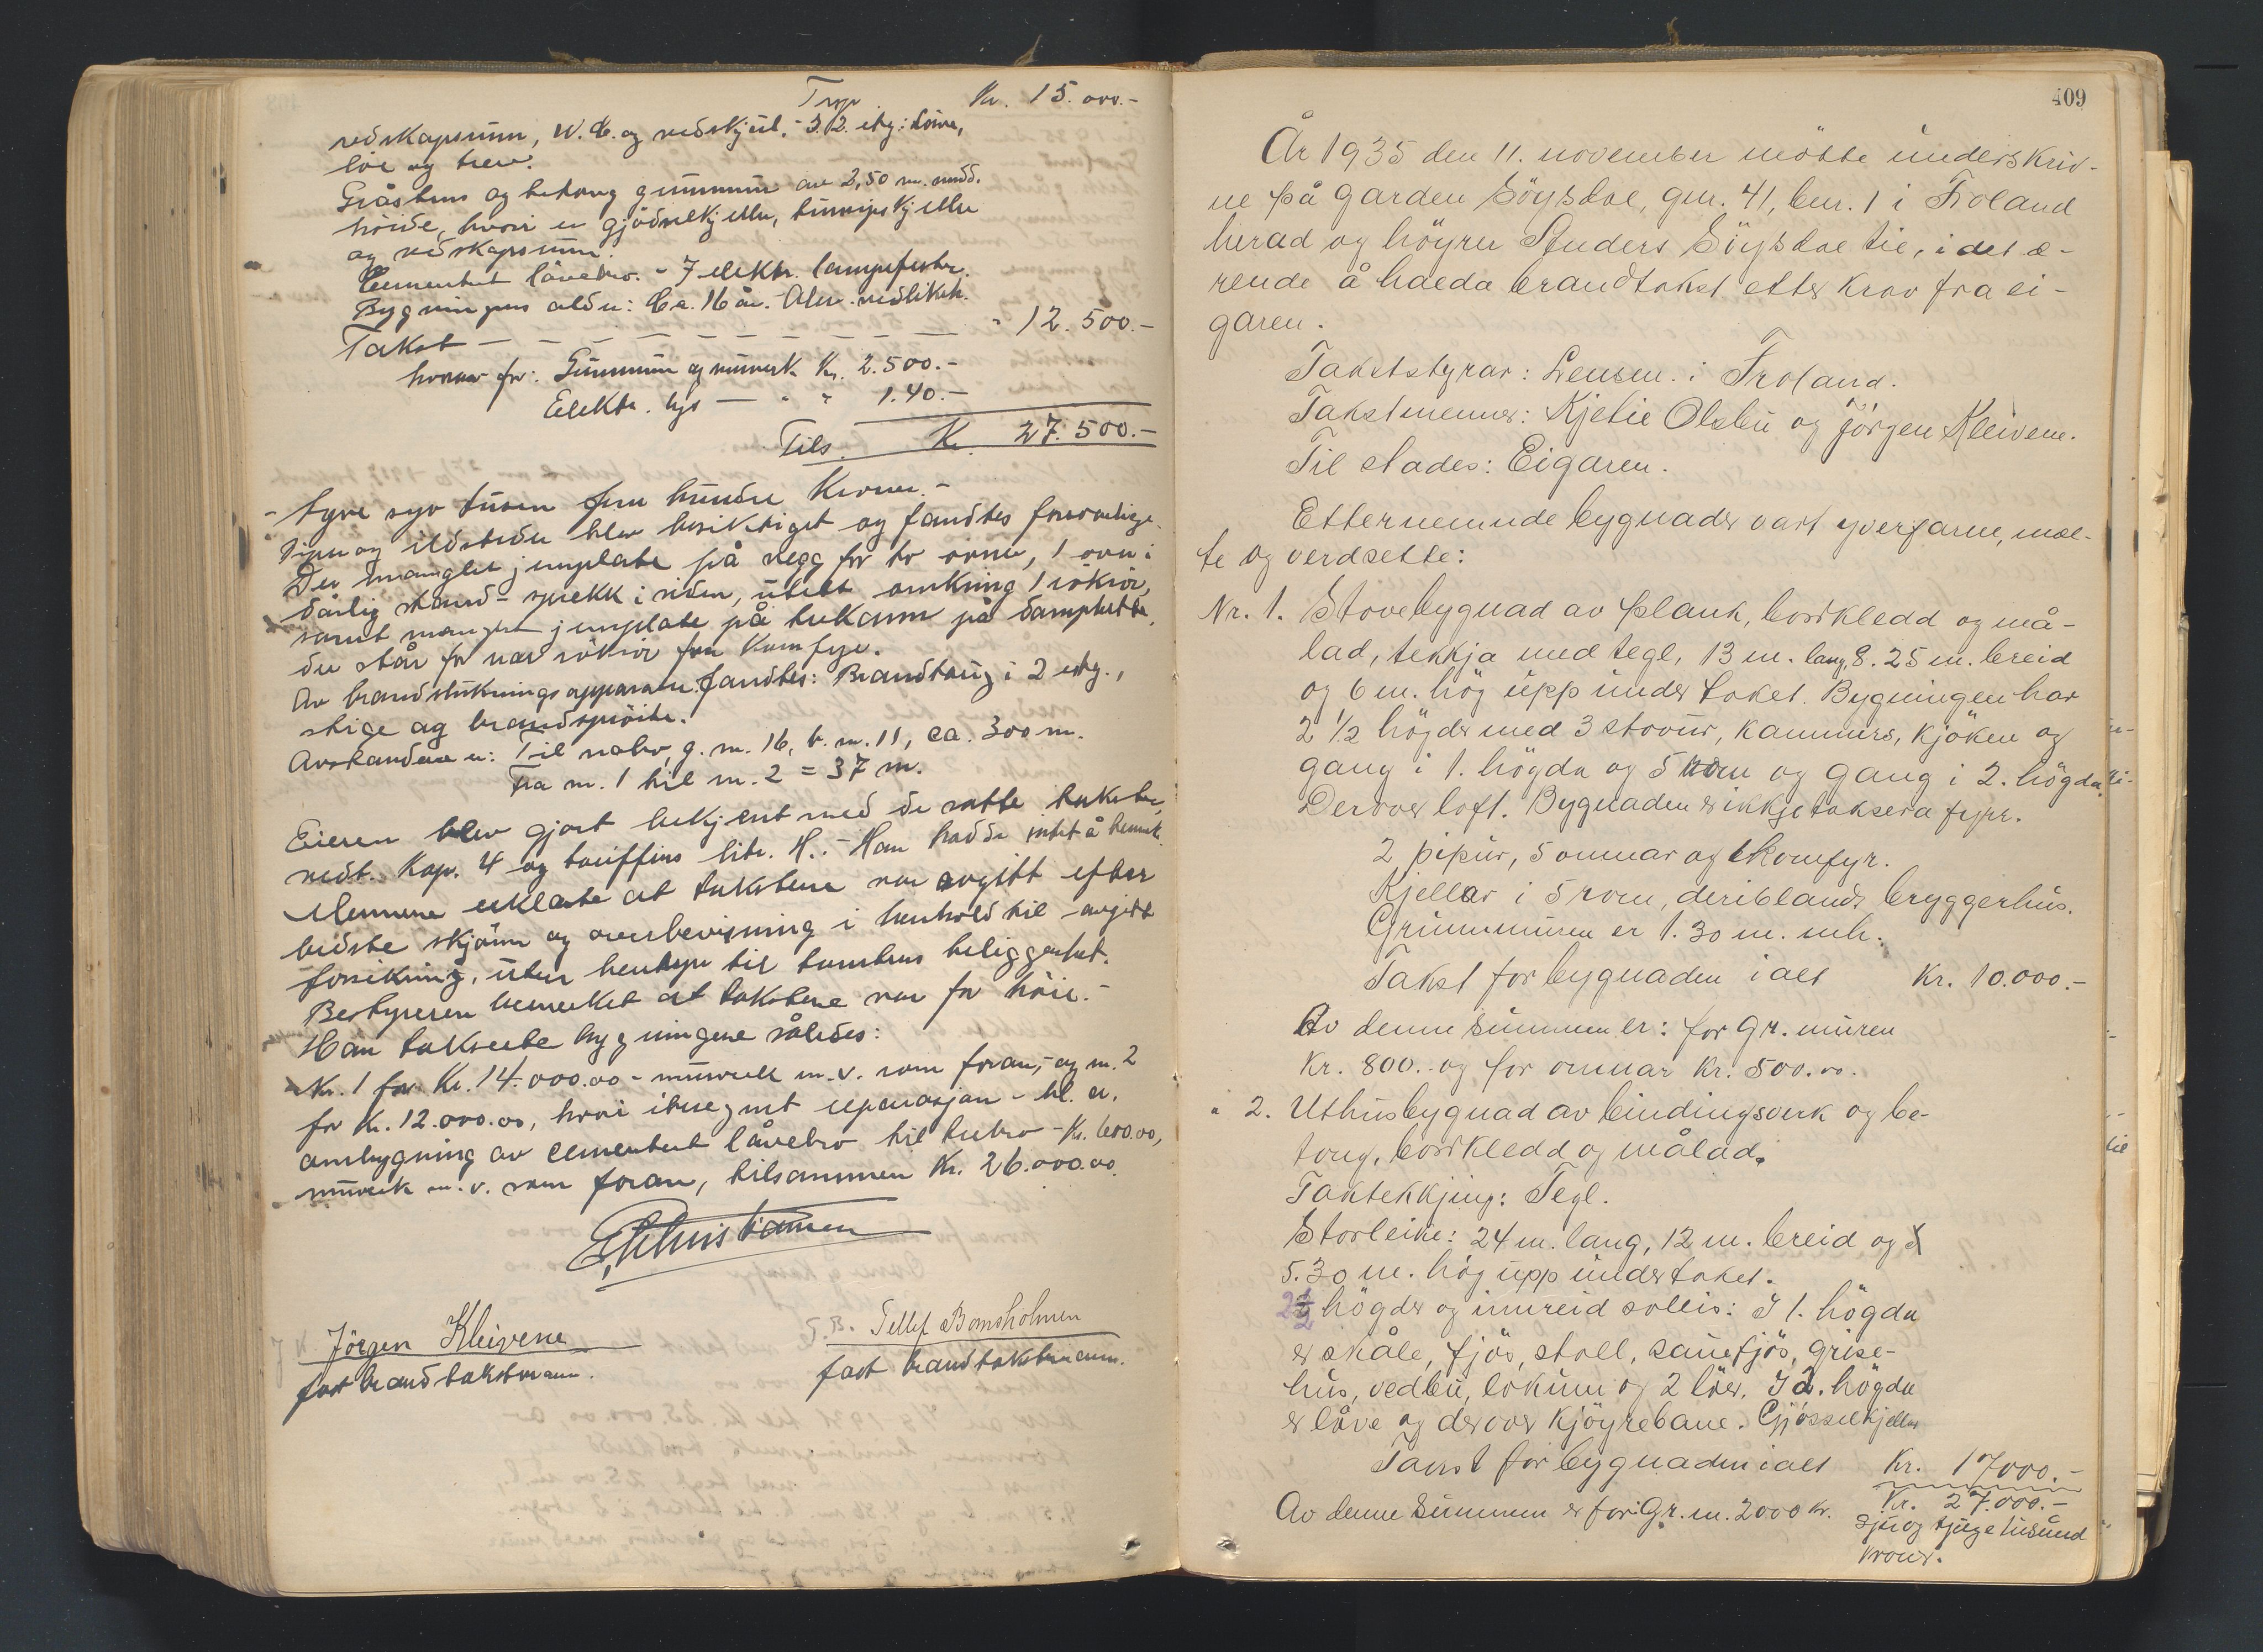 Trsp. Kr. 15.000.-
redskapsrum, W.C. og vedskjul. - I 2. etg: Låve,
löe og trev.
Gråstens og betong grunnmur av 2,50 m. midd.
höide, hvori er gjödselkjeller, turnipskjeller
og redskapsrum.
Cementert låvebro. - 7 elektr. lampefester.
Bygningens alder: Ca. 16 år. Alm. vedlikeh.
Takst - - - - - - - " 12.500.-
hvorav for: Grunnmur og murverk Kr. 2.500.-
Elektr. lys — " " 140.-
Tils. Kr. 27.500.-
- tyve syv tusen fem hundre kroner. -
Piper og ildsteder blev besiktiget og fandtes forsvarlige.
Der mangler jernplate på vegg for to ovner, 1 ovn i
dårlig stand - sprekk i siden, utett omkring 1 rökrör,
samt mangler jernplate på trekarm på damphette,
der står for nær rökrör fra komfyr.
Av brandslukningsapparater fandtes: Brandtaug i 2 etg.,
stige og brandspröite.
Avstandene er: Til nabo, g.nr. 16, b.nr. 11, ca. 300 m.
Fra nr. 1 til nr. 2 = 37 m.
Eieren blev gjort bekjent med de satte takster,
vedt. Kap. 4 og tariffens litr. H. - Han hadde intet å bemerk.
Mennene erklærte at takstene var avgitt efter
bedste skjönn og overbevisning i henhold til avgitt
forsikring, uten hensyn til tomtens beliggenhet.
Bestyreren bemerket at takstene var for höie. -
Han takserte bygningene således:
Nr. 1 for Kr. 14.000.00 - murverk m.v. som foran, - og nr. 2
for Kr. 12.000.00, hvori iberegnet reparasjon - bl. a.
ombygning av cementert låvebro til trebro - Kr. 600.00,
murverk m.v. som foran, tilsammen Kr. 26.000.00.
E. Christiansen
Jörgen Kleivene Tellef Bomsholmen
fast brandtakstmann. fast brandtakstmann.
409
År 1935 den 11. november mötte underskriv-
ne på garden Söysdal, gnr. 41, bnr. 1 i Froland
herad og höyrer Anders Söysdal til, i det æ-
rende å halda brandtakst etter krav fra ei-
garen.
Takststyrar: Lensm. i Froland.
Takstmenner: Kjetil Olsbu og Jörgen Kleivene.
Til stades: Eigaren.
Etternemnde bygnader vart yverfarne, mæl-
te og verdsette:
Nr. 1. Stovebygnad av plank, bordkledd og må-
lad, tekkja med tegl, 13 m. lang, 8.25 m. breid
og 6 m. hög upp under taket. Bygningen har
2 1/2 högder med 3 stovur, kammers, kjöken og
gang i 1. högda og 5 rom og gang i 2. högda.
Derover loft. Bygnaden er ikkje taksera fyrr.
2 pipur, 5 omnar og 1 komfyr.
Kjellar i 5 rom, deriblandt bryggerhus.
Grunnmuren er 1.30 m. mh.
Takst for bygnaden i alt Kr. 10.000.-
Av denne summen er: for gr. muren
Kr. 800.- og for omnar Kr. 500.00.
" 2. Uthusbygnad av bindingsverk og be-
tong, bordkledd og målad.
Taktekkjing: Tegl.
Storleike: 24 m. lang, 12 m. breid og
5.30 m. hög upp under taket.
2 1/2 högder og innreid solleis: I 1. högda
er skåle, fjös, stall, sauefjös, grise-
hus, vedbu, lokum og 2 löer. I 2. högda
er låve og derover kjöyrebane. Gjösselkjellar
Takst for bygnaden i alt Kr. 17000.-
Kr. 27.000.-
Av denne summen er for: Gr. m. 2000 kr. sju og tjuge tusund
kroner.